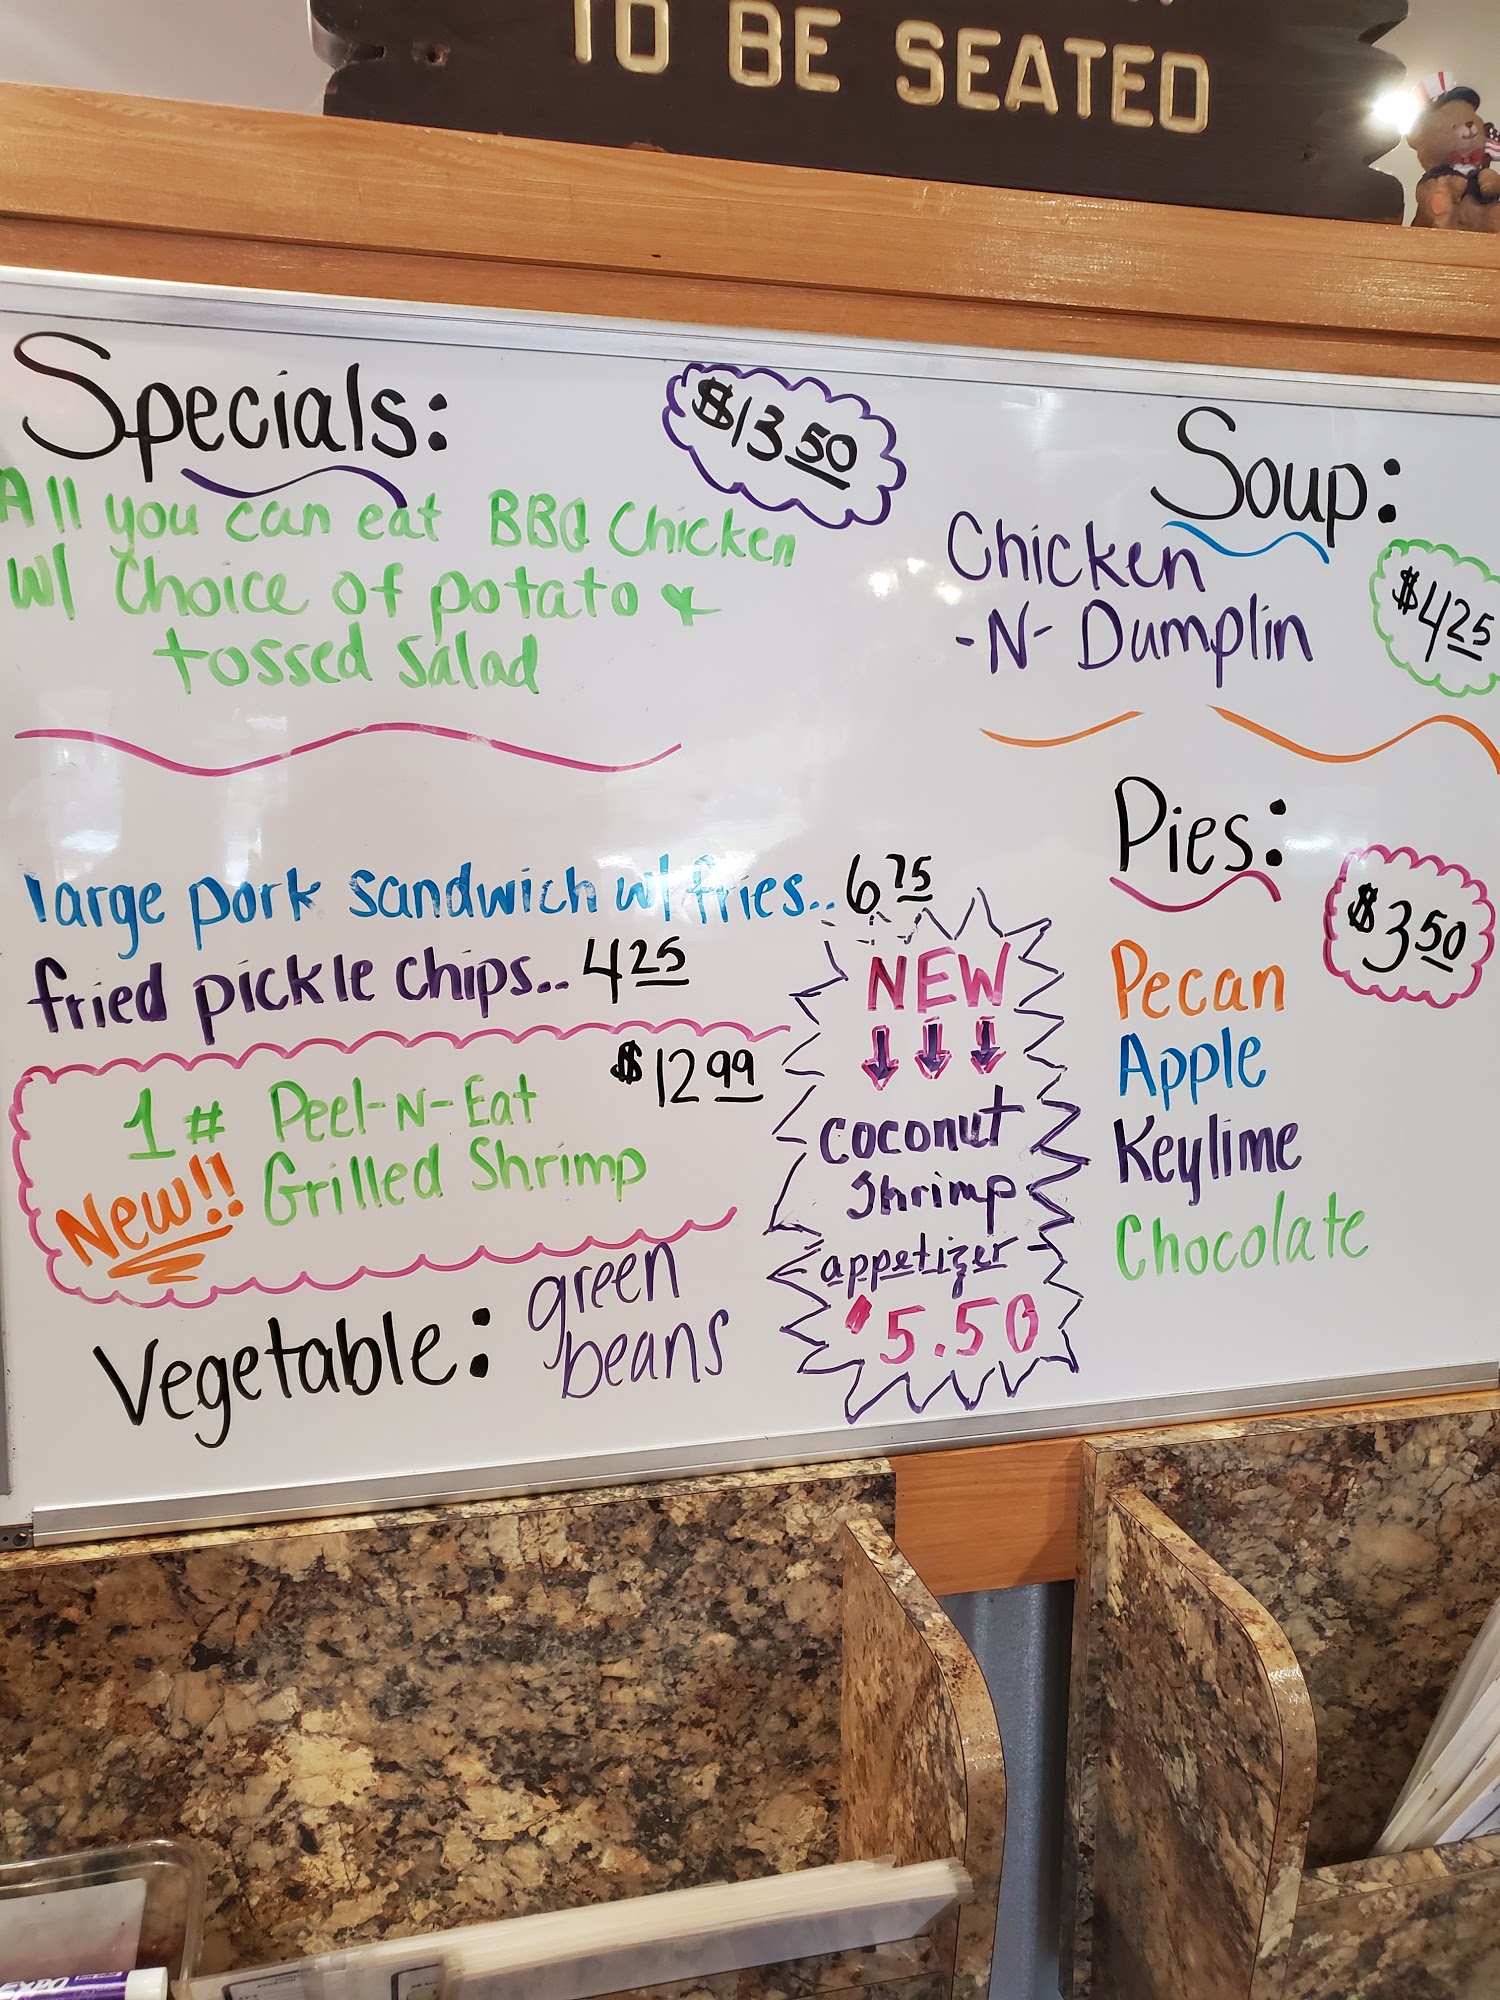 TO BE SEATED
Specials:
$13.50
All you can eat BBQ Chicken
w/ Choice of potato &
tossed salad
Soup:
Chicken
-N- Dumplin
$4.25
large pork sandwich w/ fries.. 6.75
fried pickle chips.. 4.25
$12.99
1# Peel-N-Eat
New!! Grilled Shrimp
Vegetable: green
beans
NEW
coconut
shrimp
appetizer
$5.50
Pies:
$3.50
Pecan
Apple
Keylime
Chocolate
EXPO